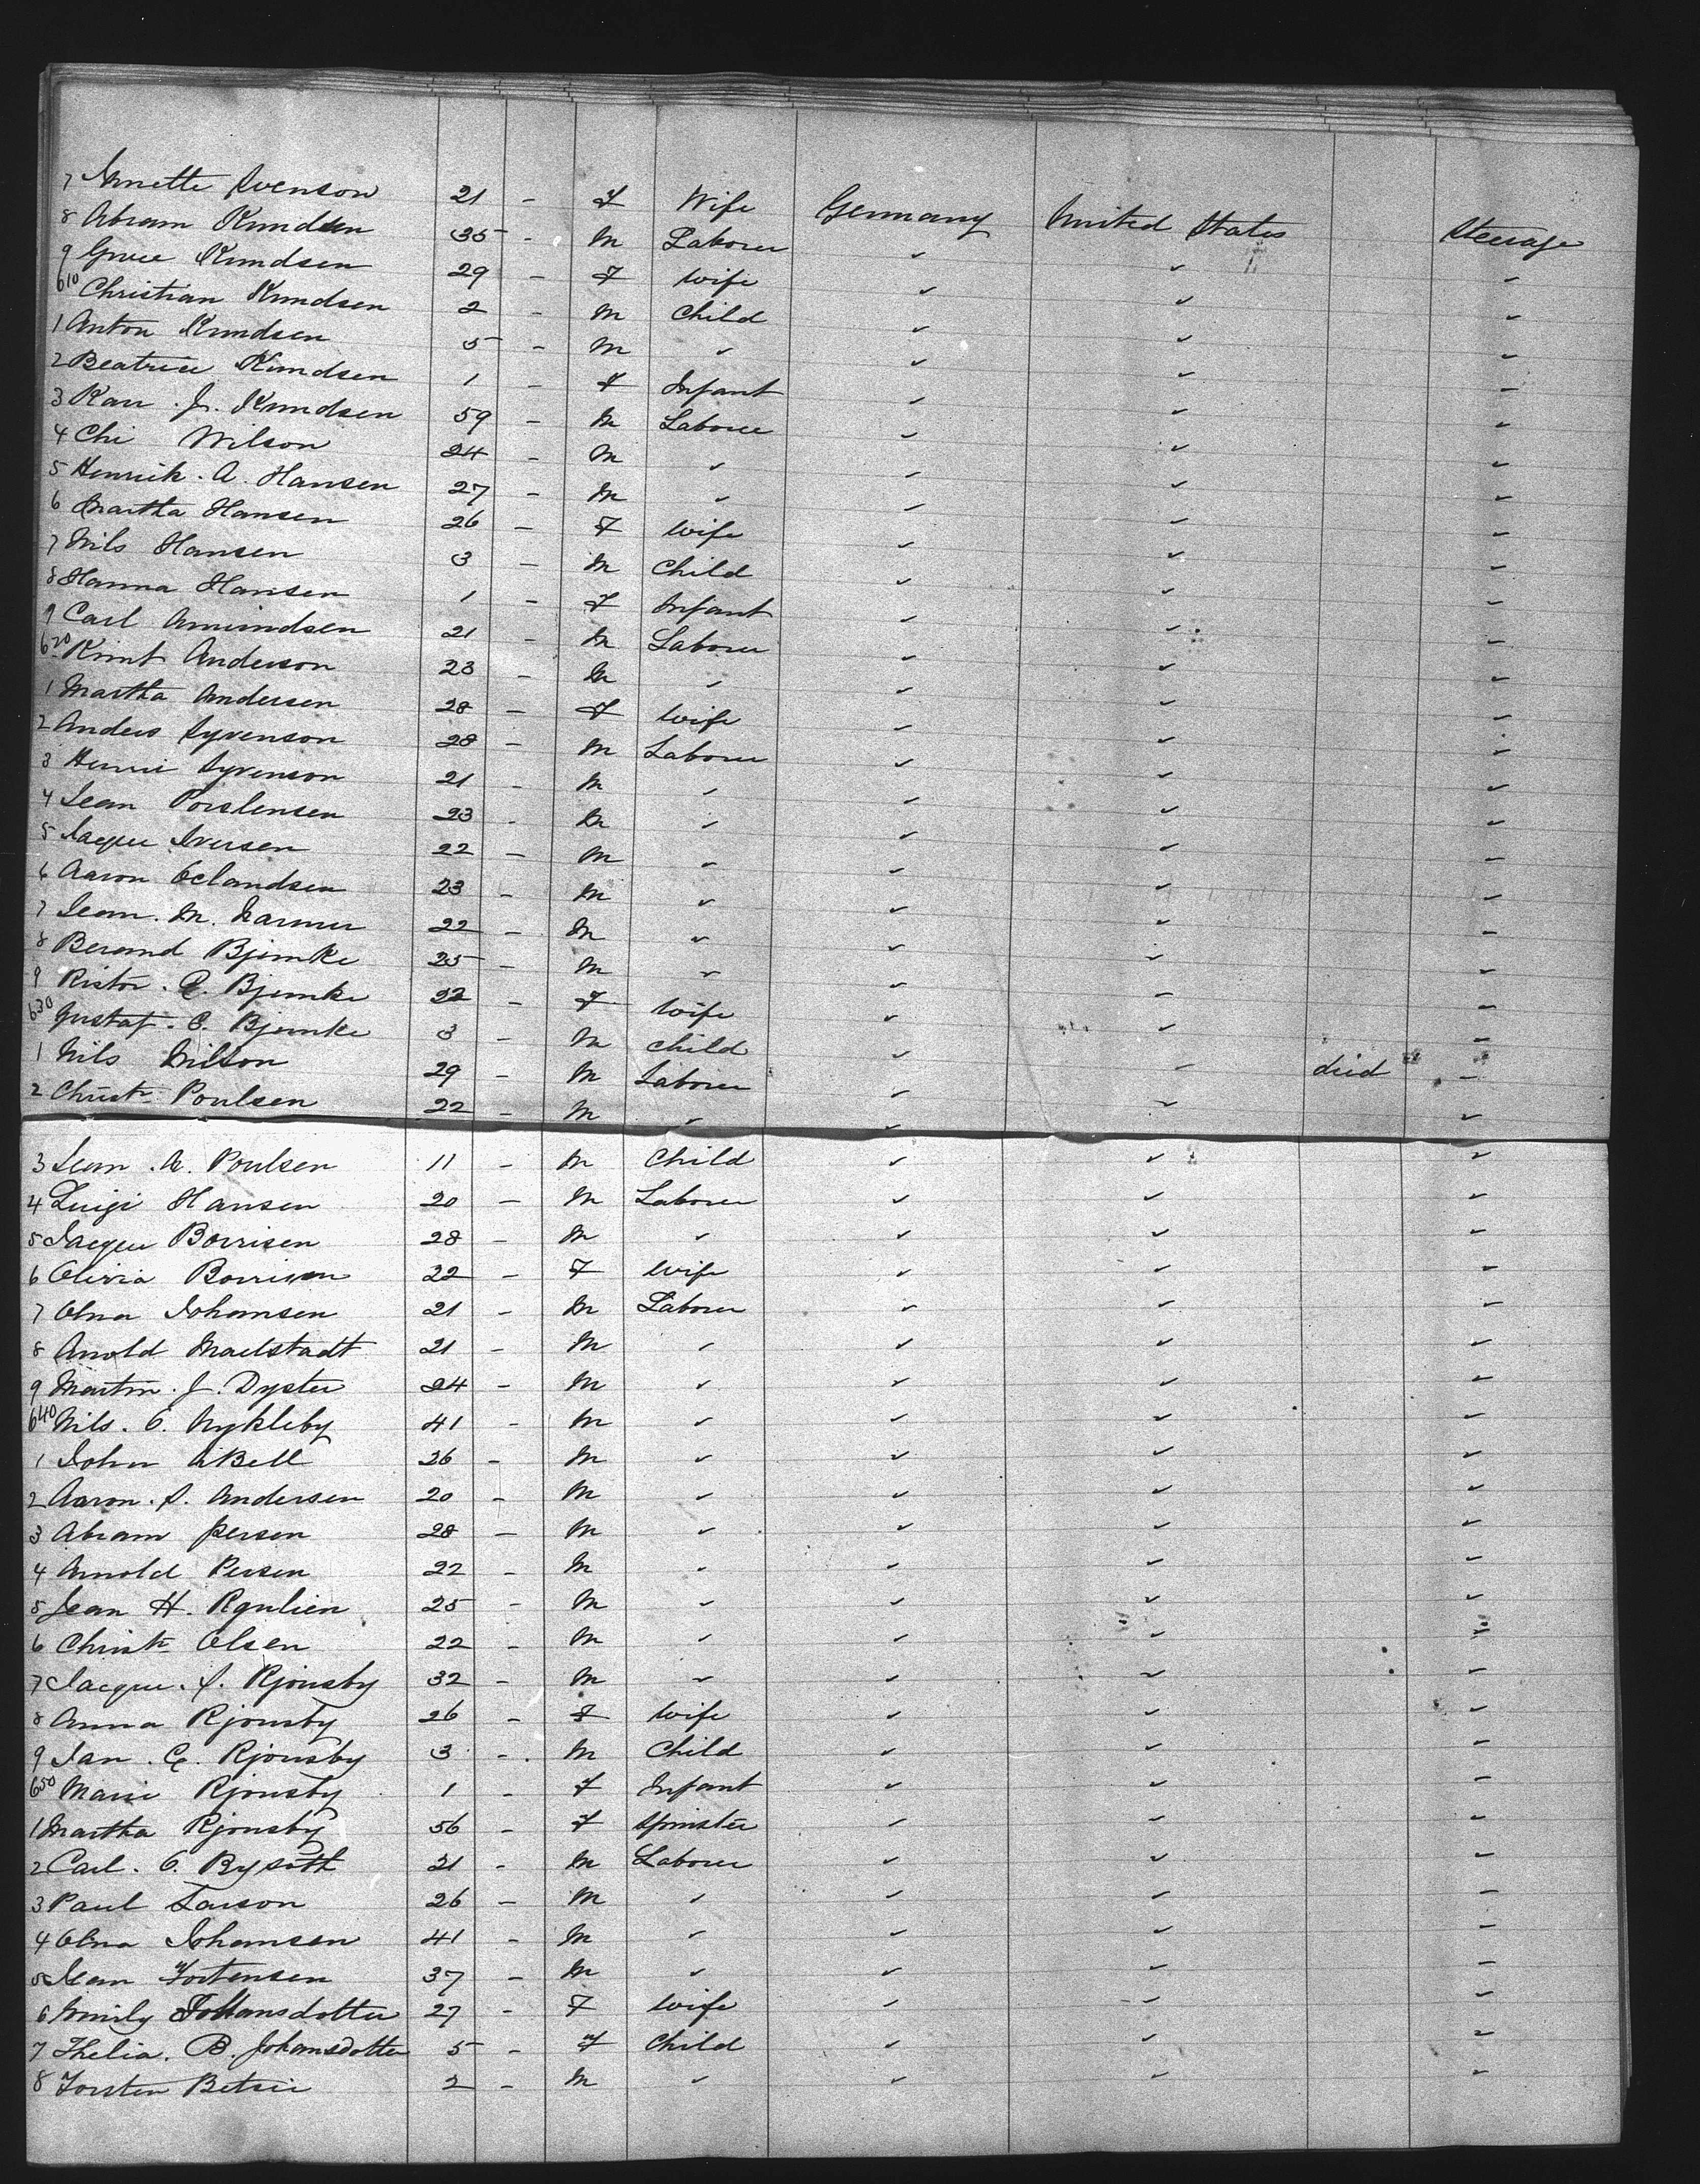 7 Annette Svenson 21 - F Wife Germany United States Steerage
8 Abram Knudsen 35 - M Laborer " " "
9 Grace Knudsen 29 - F Wife " " "
610 Christian Knudsen 2 - M Child " " "
1 Anton Knudsen 5 - M " " " "
2 Beatrice Knudsen 1 - F Infant " " "
3 Karr J. Knudsen 59 - M Laborer " " "
4 Chi Wilson 24 - M " " " "
5 Henrik. A. Hansen 27 - M " " " "
6 Martha Hansen 26 - F Wife " " "
7 Nils Hansen 3 - M Child " " "
8 Hanna Hansen 1 - F Infant " " "
9 Carl Amundsen 21 - M Laborer " " "
620 Knut Anderson 23 - M " " " "
1 Martha Andersen 28 - F Wife " " "
2 Anders Syvenson 28 - M Laborer " " "
3 Henri Syvenson 21 - M " " " "
4 Jean Porslensen 23 - M " " " "
5 Jaque Iversen 22 - M " " " "
6 Aaron Oclandsen 23 - M " " " "
7 Jean. M. 22 - M " " " "
8 Berand Bjemke 25 - M " " " "
9 Ristor. C. Bjemke 22 - F Wife " " "
630 Gustaf. C. Bjemke 3 - M Child " " "
1 Nils Nilson 29 - M Laborer " " died "
2 Christn Poulsen 22 - M " " " "
3 Jean. A. Poulsen 11 - M Child " " "
4 Luigi Hansen 20 - M Laborer " " "
5 Jaque Borrisen 28 - M " " " "
6 Olivia Borrisen 22 - F Wife " " "
7 Olna Johansen 21 - M Laborer " " "
8 Arnold Maelstadt 21 - M " " " "
9 Martin. J. Dyster 24 - M " " " "
640 Nils. O. Nykleby 41 - M " " " "
1 John ABell 26 - M " " " "
2 Aaron. S. Andersen 20 - M " " " "
3 Abram Persen 28 - M " " " "
4 Arnold Persen 22 - M " " " "
5 Jean H. Rgulien 25 - M " " " "
6 Christn Olsen 22 - M " " " "
7 Jacque. S. Rjonsby 32 - M " " " "
8 Anna Rjonsby 26 - F Wife " " "
9 Jan. C. Rjonsby 3 - M Child " " "
650 Marie Rjonsby 1 - F Infant " " "
1 Martha Rjonsby 56 - F Spinster " " "
2 Carl. O. Rysoth 21 - M Laborer " " "
3 Paul Larson 26 - M " " " "
4 Olna Johansen 41 - M " " " "
5 Jean Tortensen 37 - M " " " "
6 Emily Johansdotter 27 - F Wife " " "
7 Thelia. B. Johansdotter 5 - F Child " " "
8 Torsten Betsie 2 - M " " " "